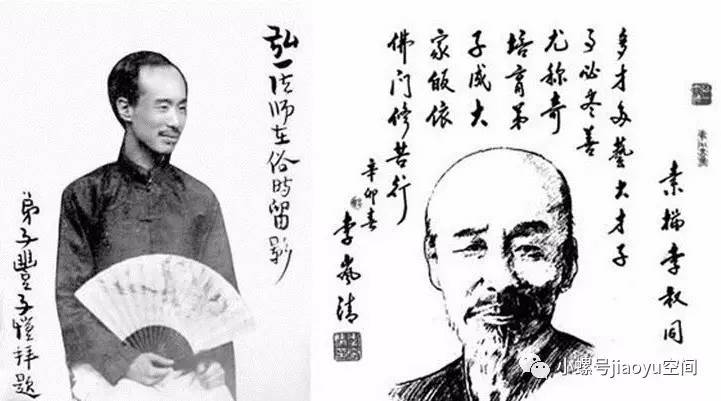 弘一法师在俗时留影
弟子豐子愷拜題
素描李叔同
多才多藝大才子
事必尽善
尤称奇
培育弟
子成大
家皈依
佛门修苦行
辛卯春
李岚清
小螺号jiaoyu空间